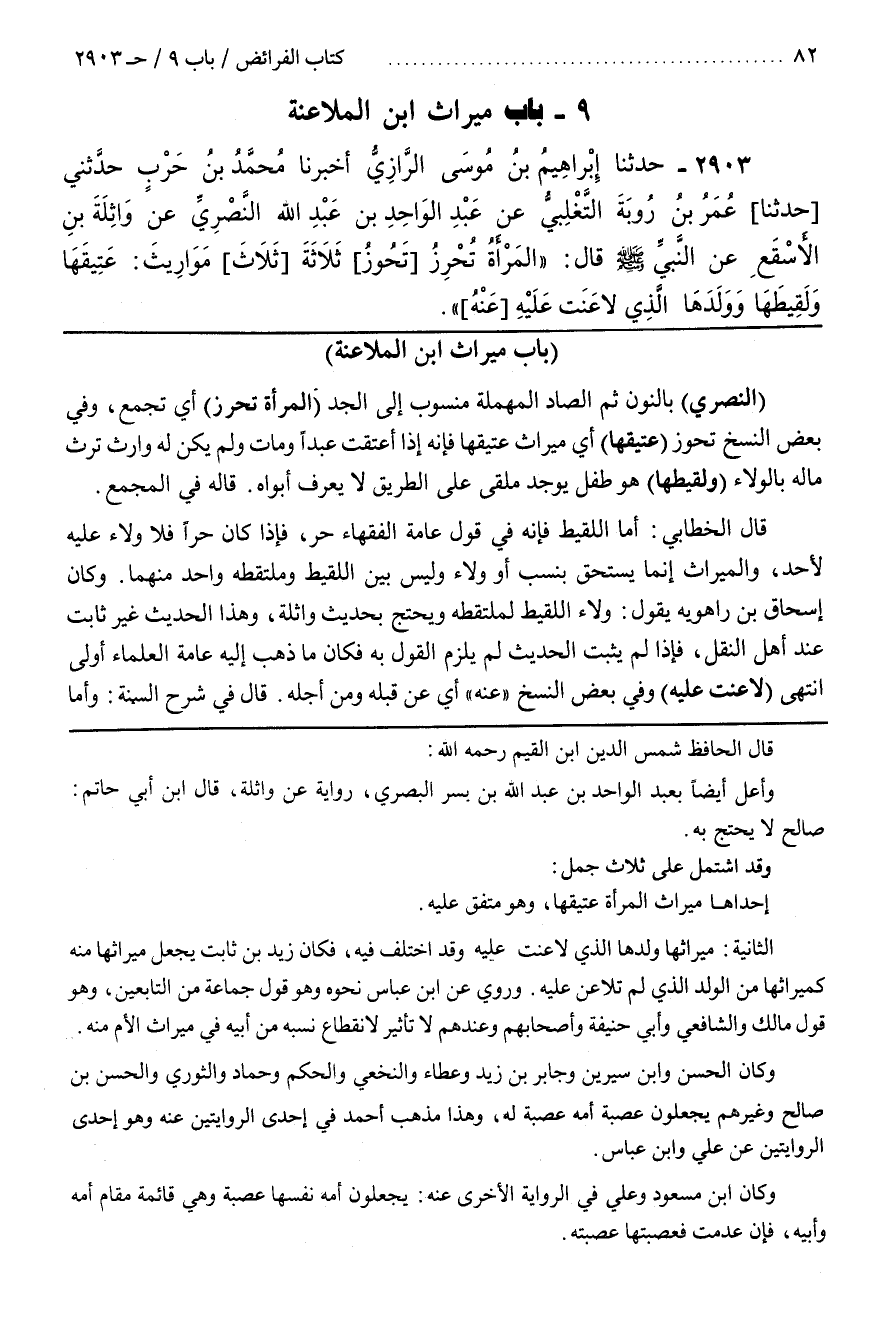 ٨٢ ................................................ كتاب الفرائض / باب ٩ / حـ ٢٩٠٣
٩ ـ باب ميراث ابن الملاعنة
٢٩٠٣ ـ حدثنا إِبْراهِيمُ بنُ مُوسَى الرَّازِيُّ أخبرنا مُحمَّدُ بنُ حَرْبٍ حدَّثني
[حدثنا] عُمَرُ بنُ رُوبَةَ التَّغْلِبيُّ عن عَبْدِ الوَاحِدِ بن عَبْدِ الله النَّصْرِيِّ عن وَاثِلَةَ بنِ
الأَسْقَعِ عن النَّبيِّ ﷺ قال: «المَرْأَةُ تُحْرِزُ [تَحُوزُ] ثَلَاثَةَ [ثَلَاثَ] مَوَارِيثَ: عَتِيقَهَا
وَلَقِيطَهَا وَوَلَدَهَا الَّذِي لاعَنَت عَلَيْهِ [عَنْهُ]».
(باب ميراث ابن الملاعنة)
(النصري) بالنون ثم الصاد المهملة منسوب إلى الجد (المرأة تحرز) أي تجمع، وفي
بعض النسخ تحوز (عتيقها) أي ميراث عتيقها فإنه إذا أعتقت عبداً ومات ولم يكن له وارث ترث
ماله بالولاء (ولقيطها) هو طفل يوجد ملقى على الطريق لا يعرف أبواه. قاله في المجمع.
قال الخطابي: أما اللقيط فإنه في قول عامة الفقهاء حر، فإذا كان حراً فلا ولاء عليه
لأحد، والميراث إنما يستحق بنسب أو ولاء وليس بين اللقيط وملتقطه واحد منهما. وكان
إسحاق بن راهويه يقول: ولاء اللقيط لملتقطه ويحتج بحديث واثلة، وهذا الحديث غير ثابت
عند أهل النقل، فإذا لم يثبت الحديث لم يلزم القول به فكان ما ذهب إليه عامة العلماء أولى
انتهى (لاعنت عليه) وفي بعض النسخ «عنه» أي عن قبله ومن أجله. قال في شرح السنة: وأما
قال الحافظ شمس الدين ابن القيم رحمه الله:
وأعل أيضاً بعبد الواحد بن عبد الله بن بسر البصري، رواية عن واثلة، قال ابن أبي حاتم:
صالح لا يحتج به.
وقد اشتمل على ثلاث جمل:
إحداهـا ميراث المرأة عتيقها، وهو متفق عليه.
الثانية: ميراثها ولدها الذي لاعنت عليه وقد اختلف فيه، فكان زيد بن ثابت يجعل ميراثها منه
كميراثها من الولد الذي لم تلاعن عليه. وروي عن ابن عباس نحوه وهو قول جماعة من التابعين، وهو
قول مالك والشافعي وأبي حنيفة وأصحابهم وعندهم لا تأثير لانقطاع نسبه من أبيه في ميراث الأم منه.
وكان الحسن وابن سيرين وجابر بن زيد وعطاء والنخعي والحكم وحماد والثوري والحسن بن
صالح وغيرهم يجعلون عصبة أمه عصبة له، وهذا مذهب أحمد في إحدى الروايتين عنه وهو إحدى
الروايتين عن علي وابن عباس.
وكان ابن مسعود وعلي في الرواية الأخرى عنه: يجعلون أمه نفسها عصبة وهي قائمة مقام أمه
وأبيه، فإن عدمت فعصبتها عصبته.